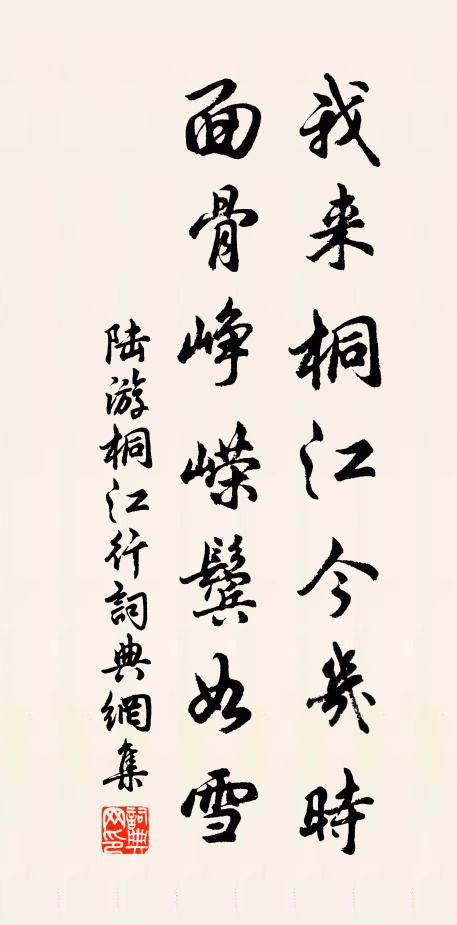 我来桐江今幾時
面骨峥嵘鬓如雪
陆游桐江行詞典網集
詞典网印